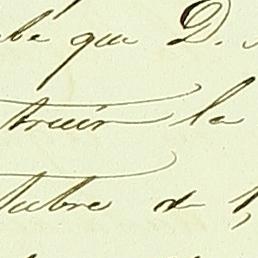 abe que D.
truir la
tubre de 1